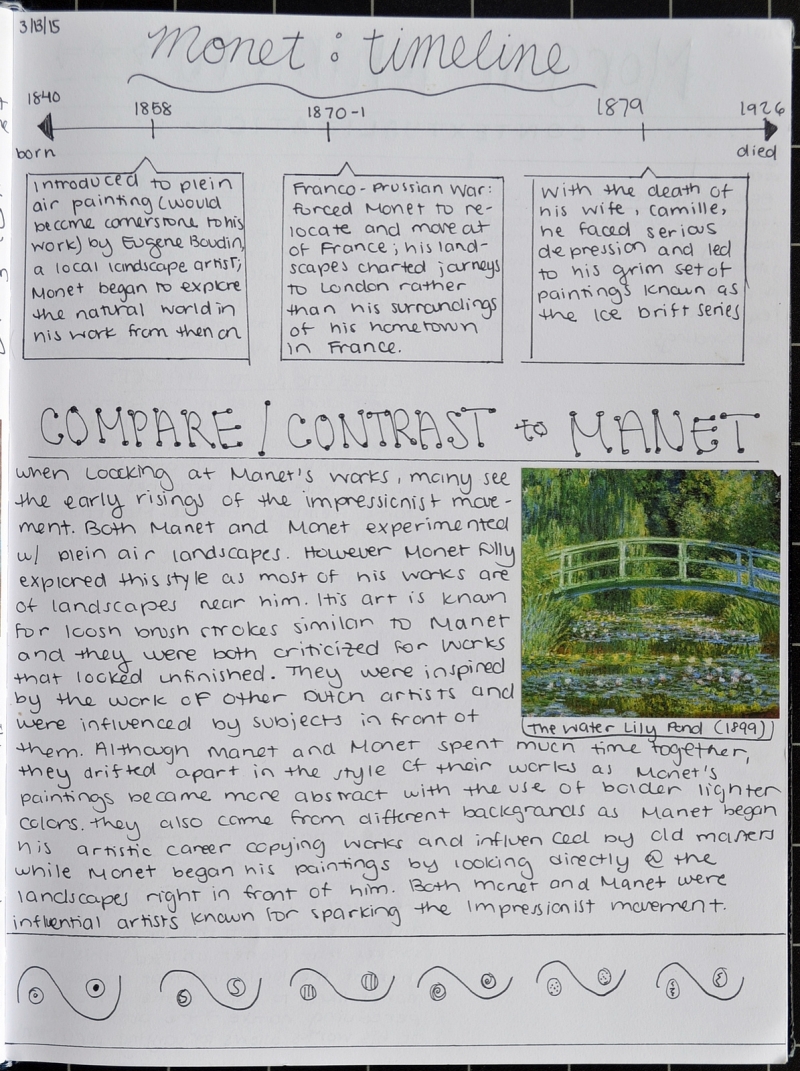 3/13/15
Monet : timeline
1840
1858
1870-1
1879
1926
born
died
Introduced to plein
air painting (would
become cornerstone to his
work) by Eugene Boudin,
a local landscape artist;
Monet began to explore
the natural world in
his work from then on
Franco-Prussian War:
forced Monet to re-
locate and move out
of France; his land-
scapes charted journeys
to London rather
than his surroundings
of his hometown
in France.
With the death of
his wife, Camille,
he faced serious
depression and led
to his grim set of
paintings known as
the Ice Drift series
COMPARE / CONTRAST to MANET
When Loocking at Manet's works, many see
the early risings of the impressionist move-
ment. Both Manet and Monet experimented
w/ plein air landscapes. However Monet fully
explored this style as most of his works are
of landscapes near him. His art is known
for loosh brush strokes similar to Manet
and they were both criticized for works
that looked unfinished. They were inspired
by the work of other Dutch artists and
were influenced by subjects in front of
The Water Lily Pond (1899)
them. Although Manet and Monet spent much time together,
they drifted apart in the style of their works as Monet's
paintings became more abstract with the use of bolder lighter
colors. They also come from different backgrounds as Manet began
his artistic career copying works and influenced by old masters
while Monet began his paintings by looking directly @ the
landscapes right in front of him. Both monet and Manet were
influential artists known for sparking the Impressionist movement.